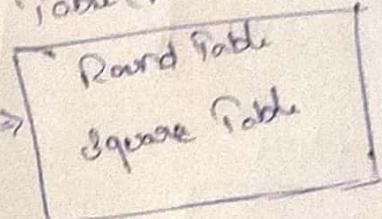 Table
⇒ Round Table
Square Table